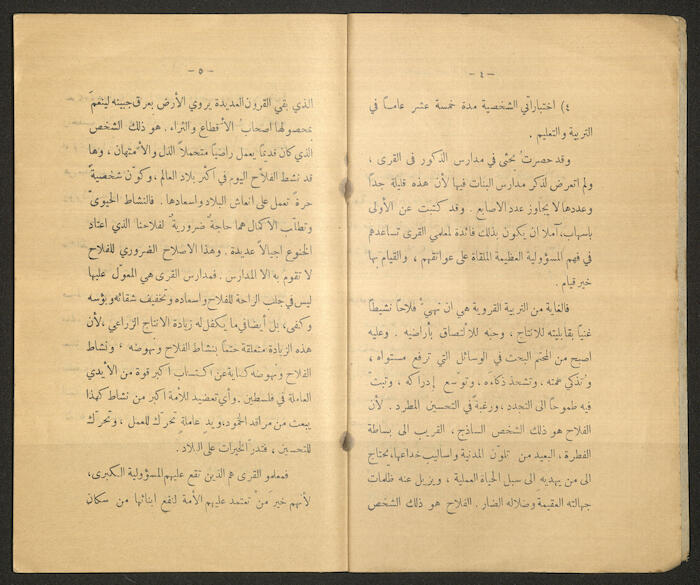 - ٤ -
٤) اختباراتي الشخصية مدة خمسة عشر عاماً في
التربية والتعليم .
وقد حصرتُ بحثي في مدارس الذكور في القرى ،
ولم اتعرض لذكر مدارس البنات فيها لأن هذه قليلة جداً
وعددها لا يجاوز عدد الاصابع . وقد كتبت عن الأولى
باسهاب، آملا ان يكون بذلك فائدة لمعلمي القرى تساعدهم
في فهم المسؤولية العظيمة الملقاة على عواتقهم ، والقيام بها
خير قيام .
فالغاية من التربية القروية هي ان تهيئ فلاحاً نشيطاً
غنياً بقابليته للانتاج ، وحبه للالتصاق بأراضيه . وعليه
اصبح من المحتم البحث في الوسائل التي ترفع مستواه ،
وتُذكي همته ، وتشحذ ذكاءه ، وتوسّع إدراكه ، وتبثّ
فيه طموحاً الى التجدد ، ورغبةً في التحسين المطرد . لأن
الفلاح هو ذلك الشخص الساذج ، القريب الى بساطة
الفطرة ، البعيد من تلوّن المدنية واساليب خداعها، يحتاج
الى من يهديه الى سبل الحياة العملية ، ويزيل عنه ظلمات
جهالته العقيمة وضلاله الضار . الفلاح هو ذلك الشخص
- ٥ -
الذي بقي القرون العديدة يروي الأرض بعرق جبينه لينعمَ
بمحصولها اصحابُ الأقطاع والثراء . هو ذلك الشخص
الذي كان قديماً يعمل راضياً متحملاً الذل والأمتهان ، وها
قد نشط الفلاح اليوم في اكثر بلاد العالم ، وكوّن شخصيةً
حرةً تعمل على انعاش البلاد واسعادها . فالنشاط الحيويّ
وتطلّب الأكمال هما حاجةٌ ضروريةٌ لفلاحنا الذي اعتاد
الخنوع اجيالاً عديدة . وهذا الاصلاح الضروري للفلاح
لا تقوم به الا المدارس . فمدارس القرى هي المعوّل عليها
ليس في جلب الراحة للفلاح واسعاده وتخفيف شقائه وبؤسه
وكفى، بل أيضاً في ما يكفل له زيادة الانتاج الزراعي ، لأن
هذه الزيادة متعلقة حتماً بنشاط الفلاح ونهوضه ، ونشاط
الفلاح ونهوضه كناية عن اكتساب اكبر قوة من الأيدي
العاملة في فلسطين . وأي تعضيد للأمة اكبر من نشاط كهذا
يبعث من مراقد الخمود، ويدٍ عاملةٍ تحرّك للعمل ، وتحرّك
للتحسين ، فتدرّ الخيرات على البلاد .
فمعلمو القرى هم الذين تقع عليهم المسؤولية الكبرى،
لأنهم خير مَنْ تعتمد عليهم الأمة لنفع ابنائها من سكان